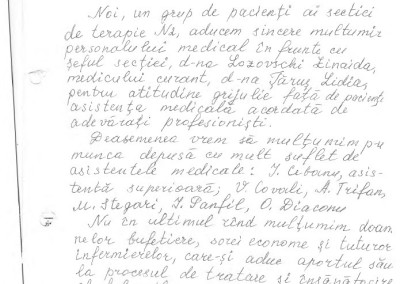 Noi, un grup de pacienți ai secției
de terapie N2, aducem sincere mulțumiri
personalului medical în frunte cu
șeful secției, d-na Lozovschi Zinaida,
medicului curant, d-na Țăruș Lidia,
pentru atitudine grijulie față de pacienți
asistența medicală acordată de
adevărați profesioniști.
Deasemenea vrem să mulțumim pu
munca depusă cu mult suflet de
asistentele medicale: I. Cebanu, asis-
tentă superioară; V. Covali, A. Trifan,
M. Stegari, I. Panfil, O. Diaconu
Nu în ultimul rînd mulțumim doam
nelor bufetiere, sorei econome și tuturor
infirmierelor, care-și aduc aportul său
la procesul de tratare și însănătoșire